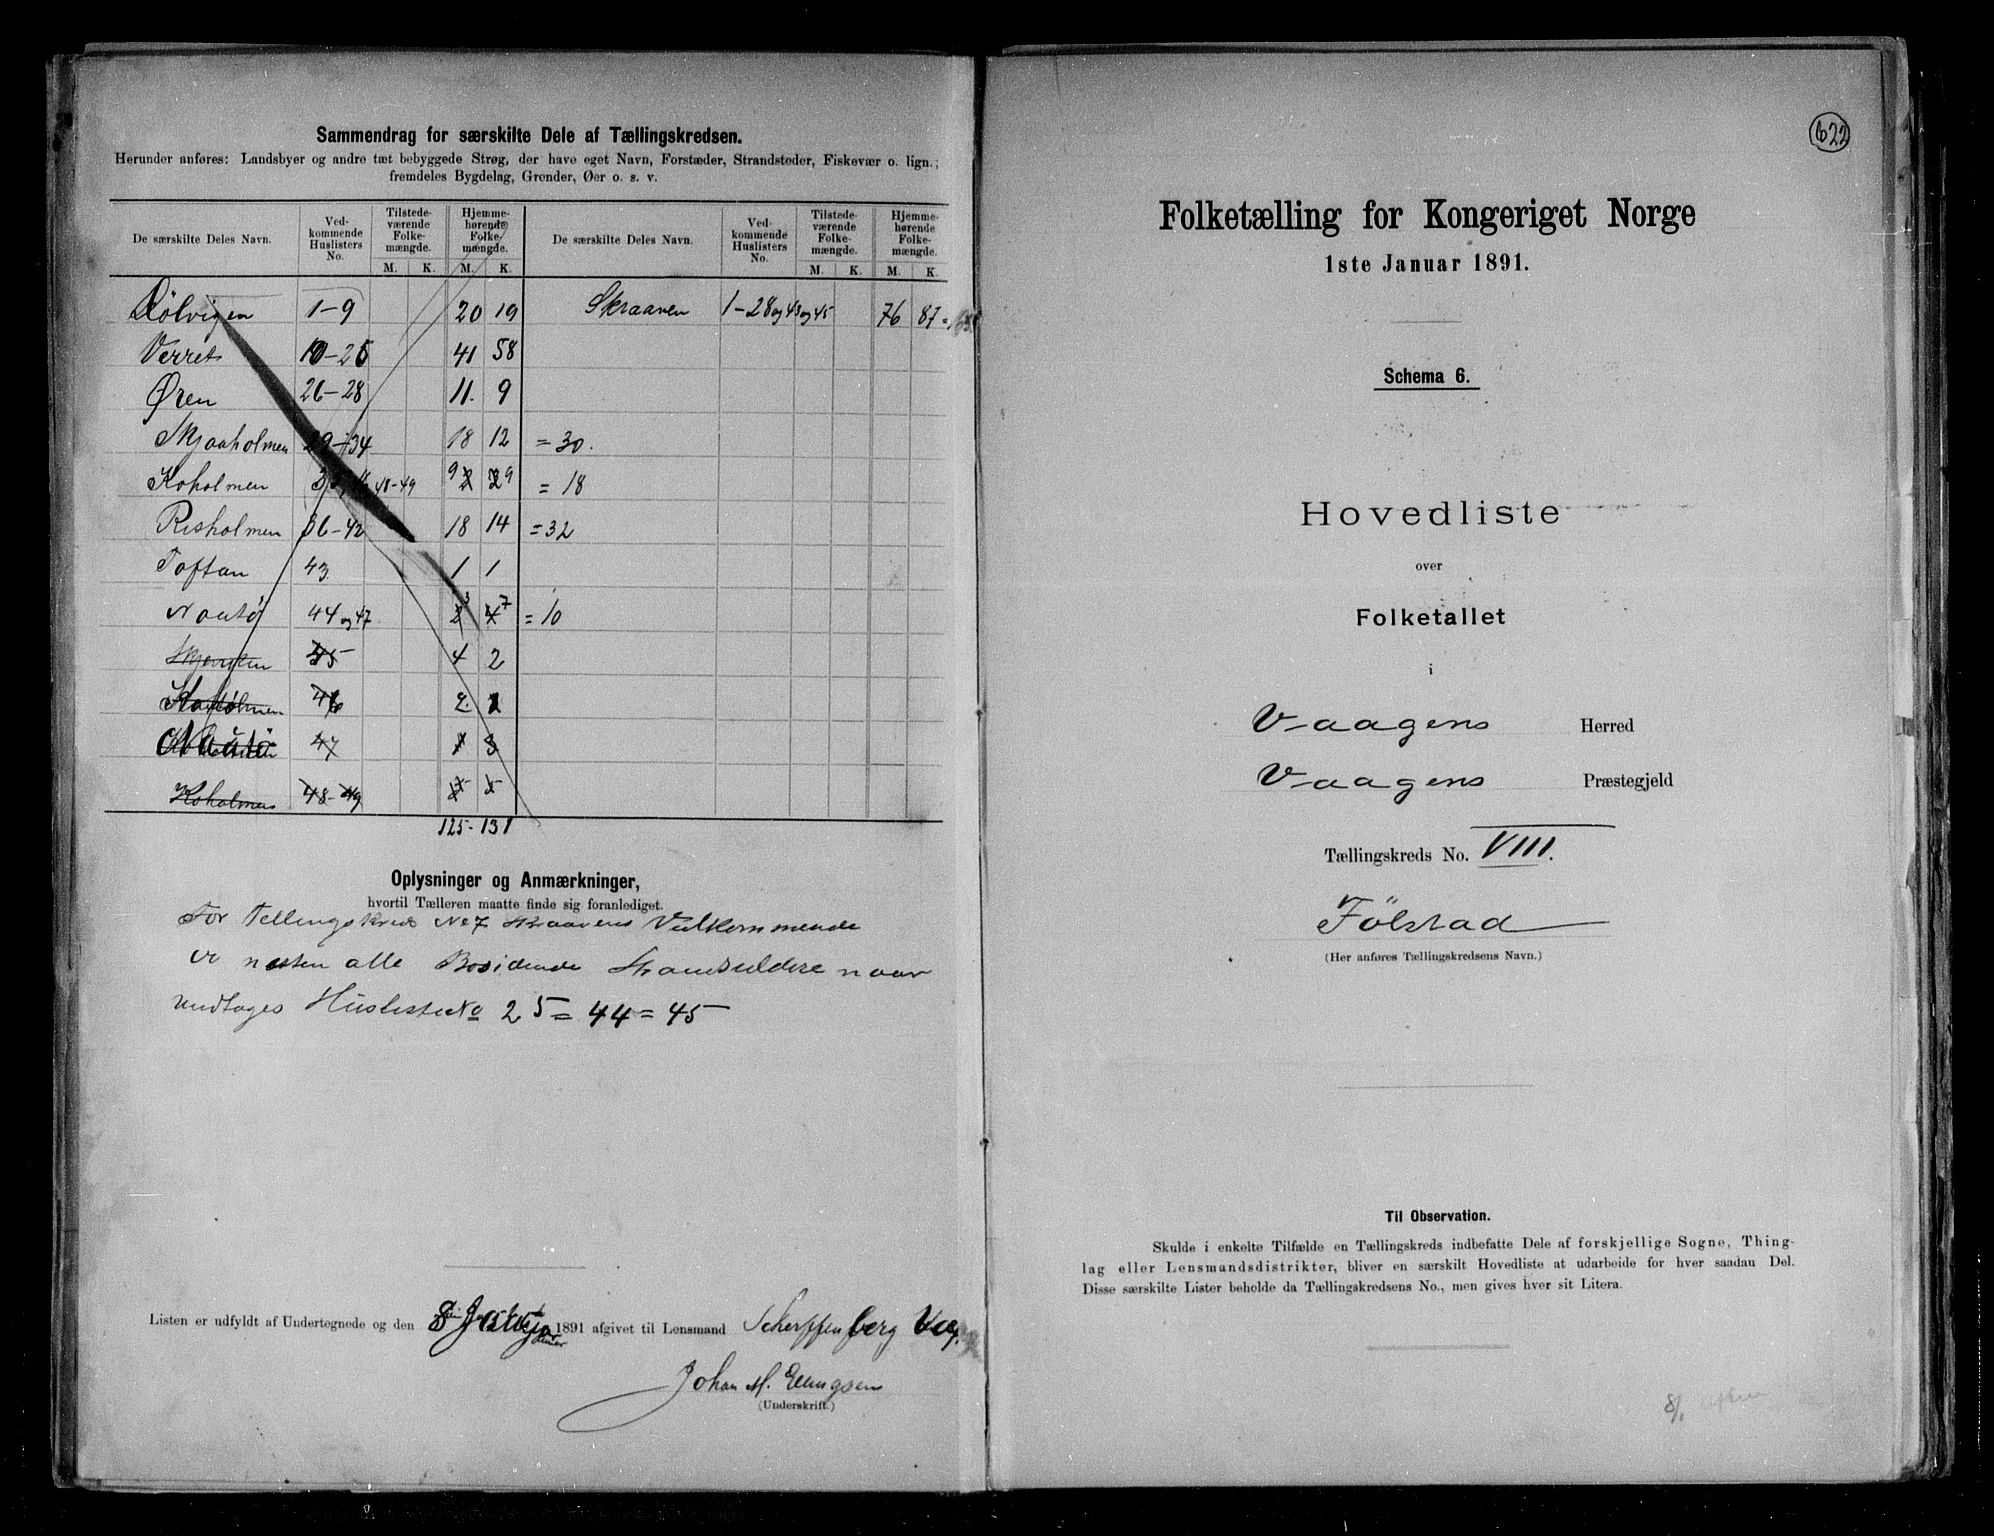 Sammendrag for særskilte Dele af Tællingskredsen.
Herunder anføres: Landsbyer og andre tæt bebyggede Strøg, der have eget Navn, Forstæder, Strandsteder, Fiskevær o. lign.;
fremdeles Bygdelag, Grender, Øer o. s. v.
De særskilte Deles Navn. Ved-kommende Huslisters No. Tilstede-værende Folke-mængde. Hjemme-hørende Folke-mængde. De særskilte Deles Navn. Ved-kommende Huslisters No. Tilstede-værende Folke-mængde. Hjemme-hørende Folke-mængde.
M. K. M. K. M. K. M. K.
Dølvigen 1-9 20 19 Skraaven 1-28 og 43 og 45 76 87
Verret 10-25 41 58
Øren 26-28 11. 9
Skjaaholmen 29-34 18 12 = 30.
Koholmen 48-49 9 9 = 18
Risholmen 36-42 18 14 = 32
Toftan 43 1 1
Nautø 44 og 47 3 7 = 10
45 4 2
46 2
Nautø 47
Koholmen 48-49
125 - 131
Oplysninger og Anmærkninger,
hvortil Tælleren maatte finde sig foranlediget.
For Tellingskreds No 7 Skraavens Vedkommende
er nesten alle Bosidende naar
undtages Husliste No 25 = 44 = 45
Listen er udfyldt af Undertegnede og den 8 1891 afgivet til Lensmand Scherffenberg
Johan M. Ellingsen
(Underskrift.)
622
Folketælling for Kongeriget Norge
1ste Januar 1891.
Schema 6.
Hovedliste
over
Folketallet
i
Vaagens Herred
Vaagens Præstegjeld
Tællingskreds No. VIII.
Følstad
(Her anføres Tællingskredsens Navn.)
Til Observation.
Skulde i enkelte Tilfælde en Tællingskreds indbefatte Dele af forskjellige Sogne, Thing-
lag eller Lensmandsdistrikter, bliver en særskilt Hovedliste at udarbeide for hver saadan Del.
Disse særskilte Lister beholde da Tællingskredsens No., men gives hver sit Litera.
8/1